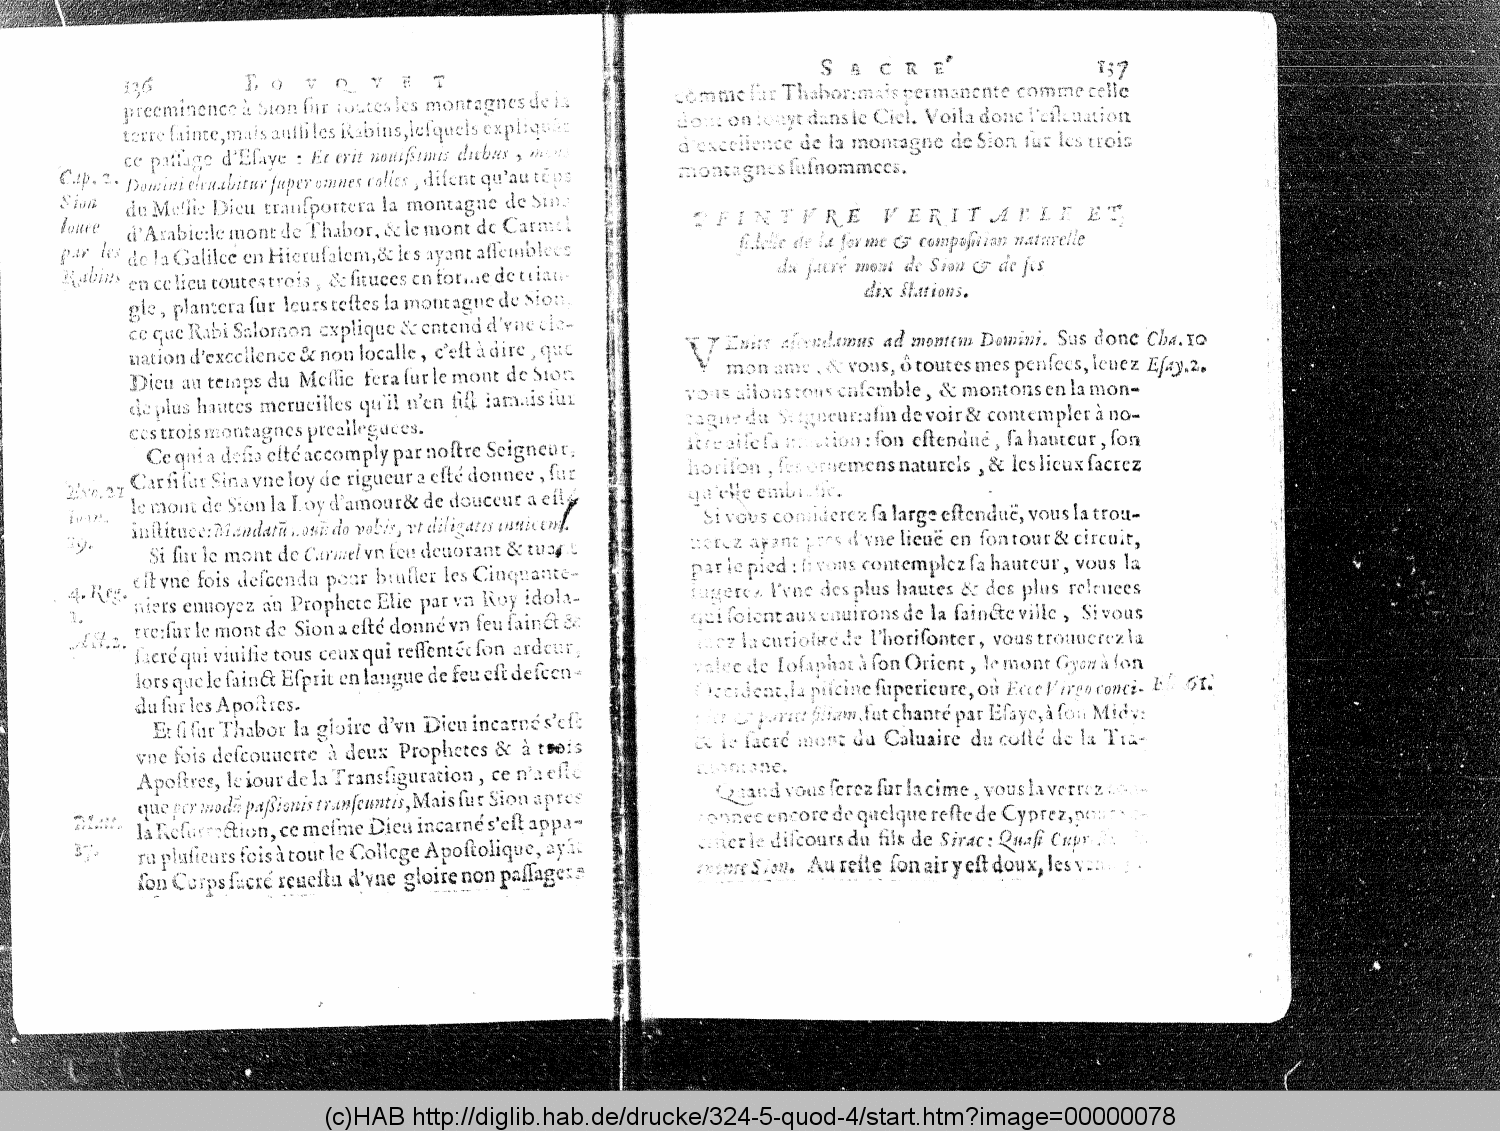 136 BOVQVET
preeminence à Sion sur toutes les montagnes de la
terre sainte, mais aussi les Rabins, lesquels expliquãs
ce passage d'Esaye : Et erit nouißimis diebus, mons
Domini eleuabitur super omnes colles, disent qu'au tẽps
du Messie Dieu transportera la montagne de Sina
d'Arabie: le mont de Thabor, & le mont de Carmel
de la Galilee en Hierusalem, & les ayant assemblees
en ce lieu toutes trois, & situees en forme de trian-
gle, plantera sur leurs testes la montagne de Sion,
ce que Rabi Salomon explique & entend d'vne ele-
uation d'excellence & non locale, c'est à dire, que
Dieu au temps du Messie fera sur le mont de Sion
de plus hautes merueilles qu'il n'en fist iamais sur
ces trois montagnes prealleguees.
Ce qui a desia esté accomply par nostre Seigneur,
Car si sur Sina vne loy de rigueur a esté donnee, sur
le mont de Sion la Loy d'amour & de douceur a esté
instituee: Mandatũ nouũ do vobis, vt diligatis inuicem.
Si sur le mont de Carmel vn feu deuorant & tuant
est vne fois descendu pour brusler les Cinquante-
niers enuoyez au Prophete Elie par vn Roy idola-
tre: sur le mont de Sion a esté donné vn feu sainct &
sacré qui viuifie tous ceux qui ressentẽt son ardeur,
lors que le sainct Esprit en langue de feu est descen-
du sur les Apostres.
Et si sur Thabor la gloire d'vn Dieu incarné s'est
vne fois descouuerte à deux Prophetes & à trois
Apostres, le iour de la Transfiguration, ce n'a esté
que per modũ paßionis transeuntis, Mais sur Sion apres
la Resurrection, ce mesme Dieu incarné s'est appa-
ru plusieurs fois à tout le College Apostolique, ayãt
son Corps sacré reuestu d'vne gloire non passagere
Cap. 2.
Sion
louee
par les
Rabins
Ioan.
4. Reg.
1.
Act. 2.
Matt.
17.
SACRÉ 137
comme sur Thabor: mais permanente comme celle
dont on iouyt dans le Ciel. Voila donc l'esleuation
d'excellence de la montagne de Sion sur les trois
montagnes susnommees.
PEINTVRE VERITABLE ET
fidelle de la forme & composition naturelle
du sacré mont de Sion & de ses
dix stations.
VEnite ascendamus ad montem Domini. Sus donc
mon ame, & vous, ô toutes mes pensees, leuez
vous allons tous ensemble, & montons en la mon-
tagne du Seigneur: afin de voir & contempler à no-
stre aise sa : son estenduë, sa hauteur, son
horison, ses ornemens naturels, & les lieux sacrez
qu'elle embrasse.
Si vous considerez sa large estenduë, vous la trou-
uerez ayant pres d'vne lieuë en son tour & circuit,
par le pied: si vous contemplez sa hauteur, vous la
iugerez l'vne des plus hautes & des plus releuees
qui soient aux enuirons de la saincte ville, Si vous
la curiosité de l'horisonter, vous trouuerez la
valee de Iosaphat à son Orient, le mont Gyon à son
Occident, la piscine superieure, où Ecce Virgo conci-
piet & pariet filium, fut chanté par Esaye, à son Midy:
& le sacré mont du Caluaire du costé de la Tra-
montane.
Quand vous serez sur la cime, vous la verrez
encore de quelque reste de Cyprez,
le discours du fils de Sirac: Quasi Cupr
Sion. Au reste son air y est doux, les
Cha. 10
Esay. 2.
61.
(c)HAB http://diglib.hab.de/drucke/324-5-quod-4/start.htm?image=00000078